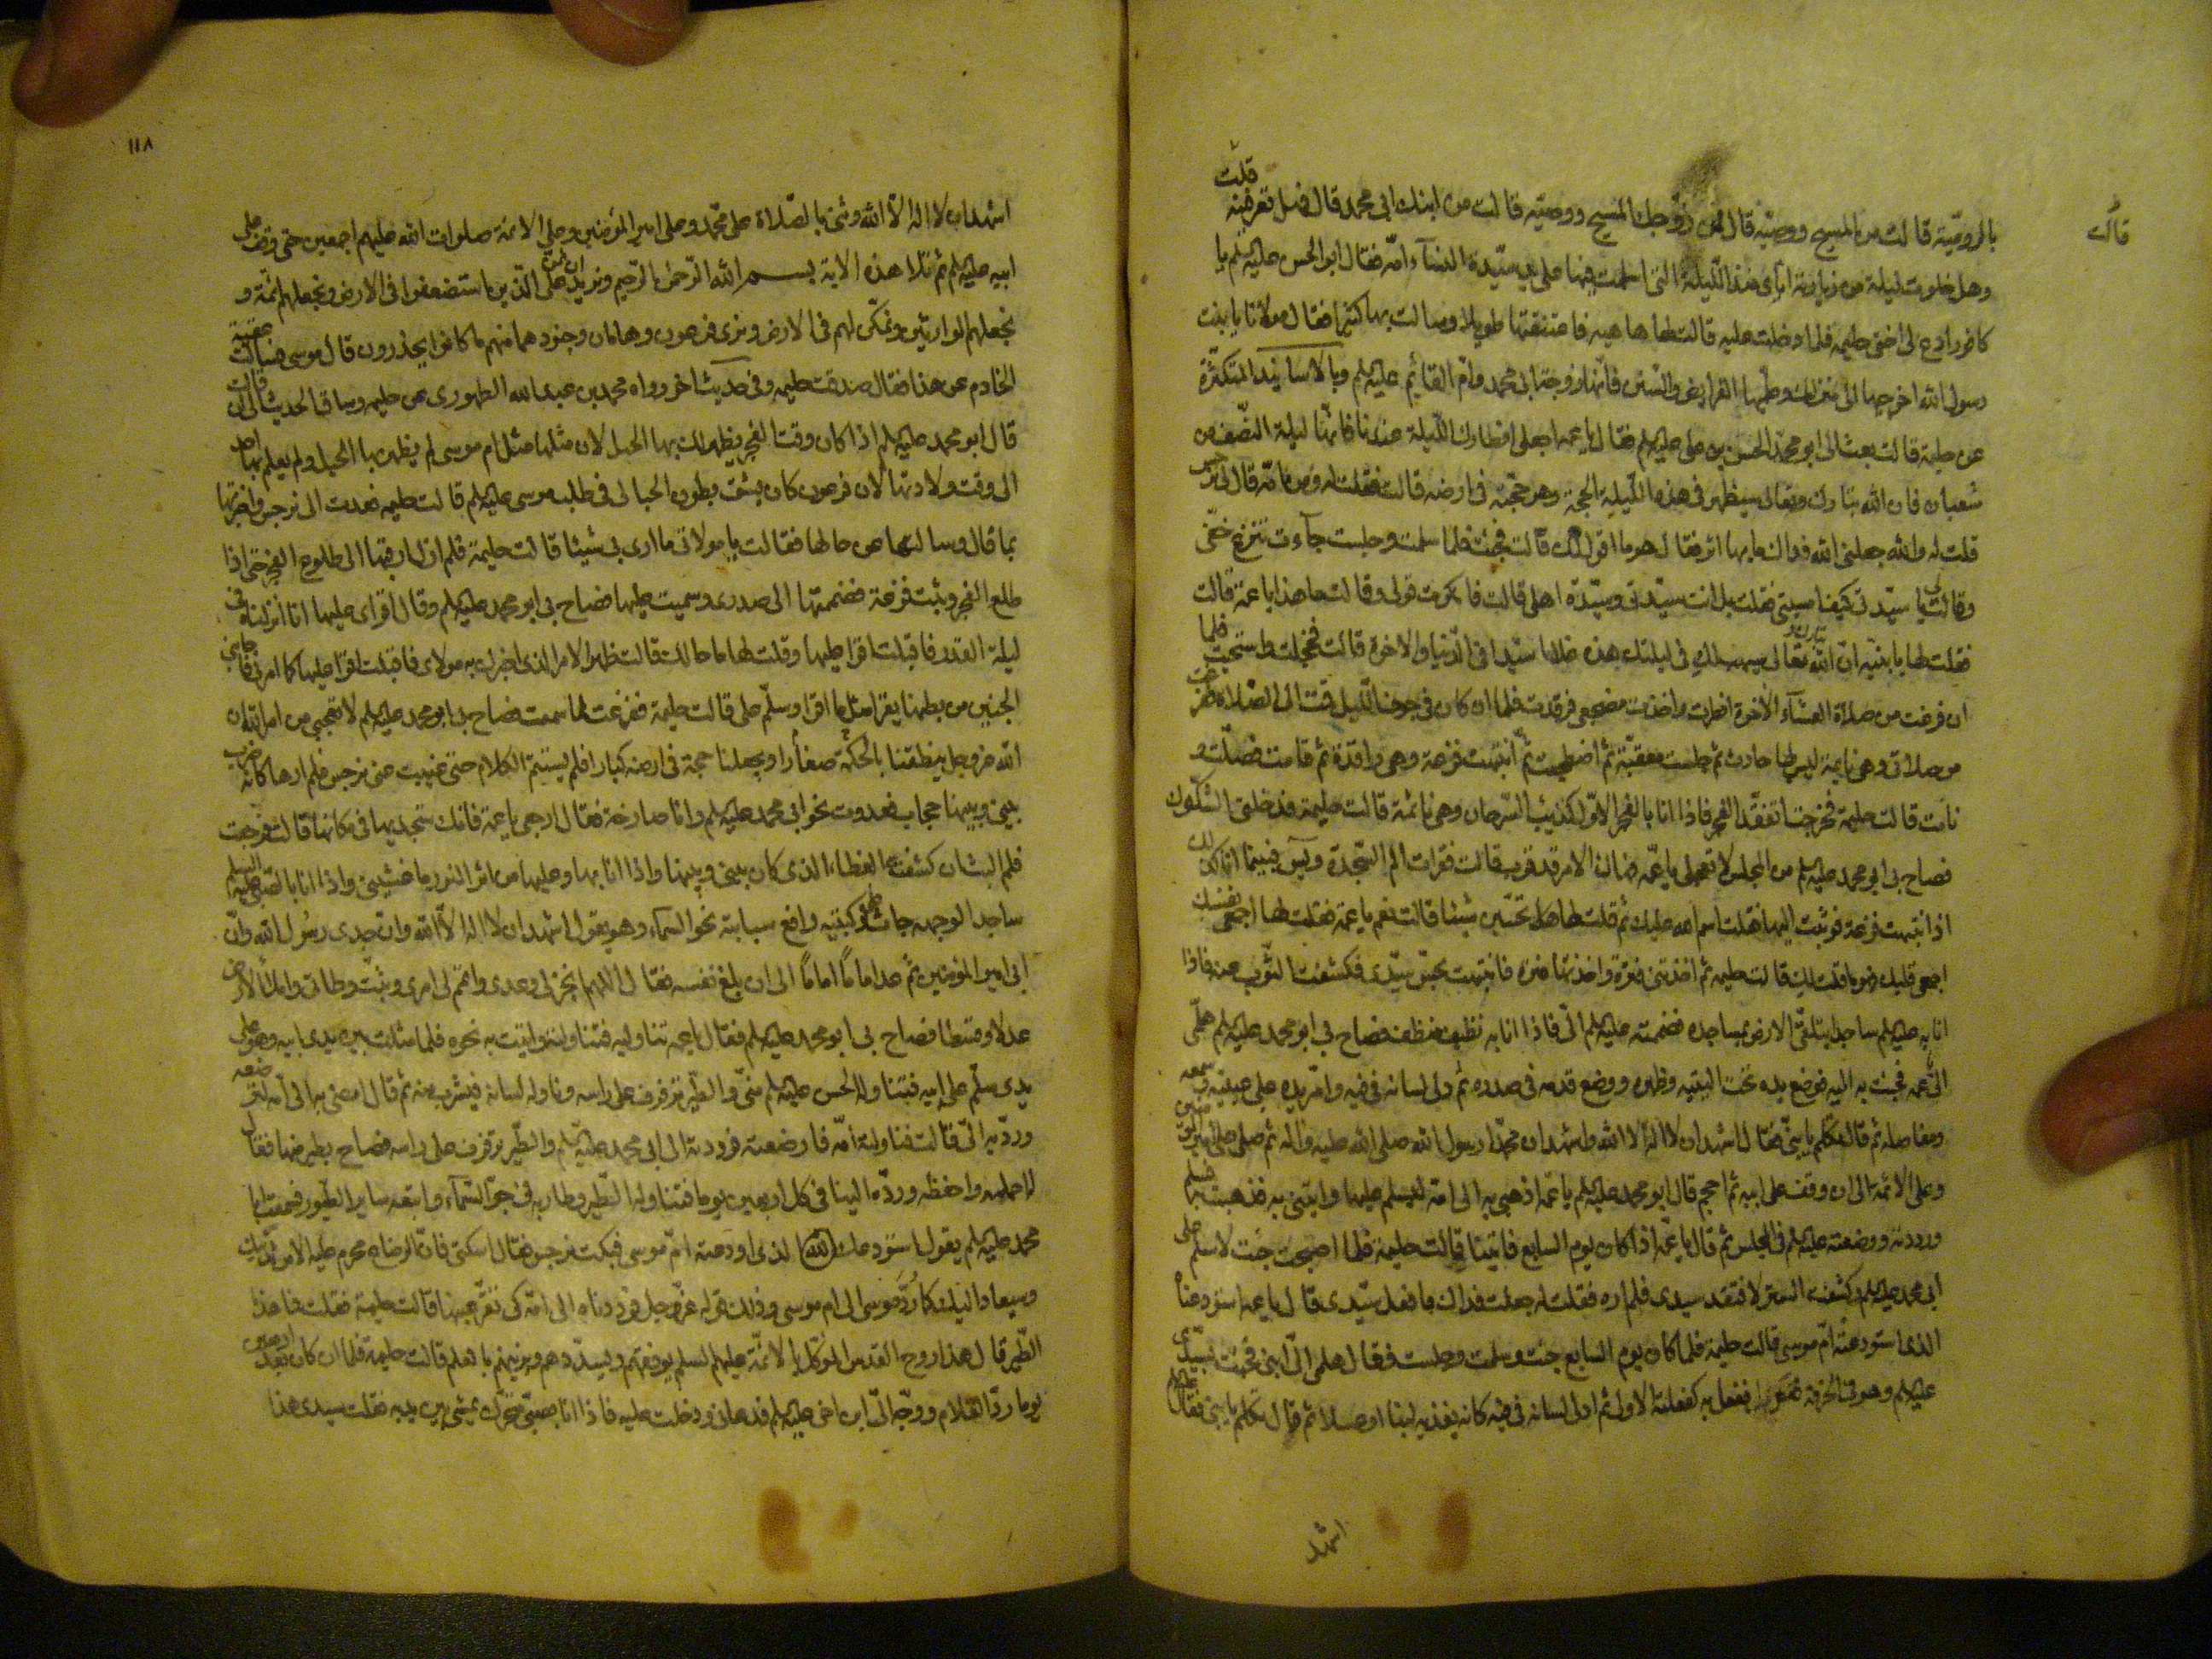 قالت
قلت
بالروميّة قالت من المسيح ووصيّه قال فمن زوّجك المسيح ووصيّه قالت من ابنك ابى محمد قال فهل تعرفينه
وهل خلوت ليلة من زيارته اياى منذ الليلة التى اسلمت فيها على يد سيّدة النسآء امّه فقال ابو الحسن عليه السلم يا
كافور ادع لى اختى حليمه فلما دخلت عليه قالت لها ها هيه فاعتنقتها طويلا وسالت بها كثيرا فقال مولانا يا بنت
رسول الله اخرجيها الى منزلك وعلّميها الفرايض والسنن فانّها زوجة ابى محمد وامّ القائم عليه السلم وبالاسانيد المتكثّرة
عن حليمة قالت بعث الى ابو محمد الحسن بن على عليه السلم فقال يا عمه اجعلى افطارك الليلة عندنا فانّها ليلة النصف من
شعبان فان الله تبارك وتعالى سيظهر فى هذه الليلة الحجة وهو حجّته فى ارضه قالت فقلت له ومن امّه قال لى نرجس
قلت له والله جعلنى الله فداك ما بها اثر فقال هو ما اقول لك قالت فجئت فلما سلمت وجلست جآءت تنزع خفّى
وقالت لى يا سيّدتى كيف امسيتى فقلت بل انت سيّدتى وسيّدة اهلى قالت فانكرت قولى وقالت ما هذا يا عمة قالت
فقلت لها يا بنيّه انّ الله تبارك وتعالى سيهب لك فى ليلتك هذه غلاما سيّدا فى الدّنيا والاخرة قالت فخجلت واستحيت فلما
ان فرغت من صلاة العشآء الاخرة افطرت واخذت مضجعى فرقدت فلما ان كان فى جوف الليل قمت الى الصّلاة ففرغت
من صلاتى وهى نايمة ليس لها حادث ثم جلست معقبّة ثم اضطجعت ثم انتبهت فزعة وهى راقدة ثم قامت فصلّت و
نامت قالت حليمة فخرجت اتفقّد الفجر فاذا انا بالفجر الاوّل كذنب السّرحان وهى نائمة قالت حليمة فدخلنى الشكوك
فصاح بى ابو محمد عليه السلم من المجلس لا تعجلى يا عمّه فهاك الامر قد قرب قالت فقرات الم السّجدة ويس فبينما انا كذلك
اذ انتبهت فزعة فوثبت اليها فقلت اسم الله عليك ثم قلت لها هل تحسّين شيئا قالت نعم يا عمة فقلت لها اجمعى نفسك
اجمعى قلبك فهو ما قلت لك قالت حليمه ثم اخذتنى فترة واخذتها فترة فانتبهت بحسّ سيّدى فكشفت الثّوب عنه فاذا
انا به عليه السلم ساجدا يتلقّى الارض بمساجده فضممته عليه السلم الىّ فاذا انا به نظيف منظف فصاح بى ابو محمد عليه السلم هلمّى
الىّ يا عمه فجئت به اليه فوضع يده تحت اليتيه وظهره ووضع قدمه فى صدره ثم ولى لسانه فى فيه وامرّ يده على عينيه وسمعه
ومفاصله ثم قال تكلم يا بنىّ فقال اشهد ان لا اله الا الله واشهد ان محمّدا رسول الله صلى الله عليه واله ثم صلى على امير المؤمنين
وعلى الائمّه الى ان وقف على ابيه ثم احجم قال ابو محمد عليه السلم يا عمّه اذهبى به الى امّه ليسلم عليها وايتنى به فذهبت به فسلم
ورددته ووضعته عليه السلم فى المجلس ثم قال يا عمّه اذا كان يوم السابع فايتينا قالت حليمة فلما اصبحت جئت لاسلم على
ابى محمد عليه السلم وكشفت السّتر لافتقد سيدى فلم اره فقلت له جعلت فداك ما فعل سيّدى قال يا عمه استودعناه
الذى استودعته امّ موسى قالت حليمة فلما كان يوم السابع جئت وسلمت وجلست فقال هلمى الىّ ابنى فجئت بسيّدى
عليه السلم وهو فى الخرقة ففعل به كفعلته الاولى ثم ادلى لسانه فى فيه كانه يغذيه لبنا او عسلا ثم قال تكلم يا بنى فقال عليه السلم
اشهد
١١٨
اشهد ان لا اله الّا الله وثنى بالصّلاة على محمّد وعلى امير المؤمنين وعلى الائمة صلوات الله عليهم اجمعين حتى وقف على
ابيه عليه السلم ثم تلا هذه الاية بسم الله الرّحمن الرّحيم ونريد ان نمنّ على الّذين استضعفوا فى الارض ونجعلهم ائمّة و
نجعلهم الوارثين ونمكّن لهم فى الارض ونرى فرعون وهامان وجنودهما منهم ما كانوا يحذرون قال موسى فسالت عقبة
الخادم عن هذا فقال صدقت حليمه وفى حديث اخر رواه محمد بن عبد الله الطهورى عن حليمه وساق الحديث الى ان قالت
قال ابو محمد عليه السلم اذا كان وقت الفجر يظهر لك بها الحبل لان مثلها مثل ام موسى لم يظهر بها الحبل ولم يعلم بها احد
الى وقت ولادتها لان فرعون كان يشق بطون الحبالى فى طلب موسى عليه السلم قالت حليمه فعدت الى نرجس فاخبرتها
بما قال وسالتها عن حالها فقالت يا مولاتى ما ارى بى شيئا قالت حليمة فلم ازل ارقبها الى طلوع الفجر حتى اذا
طلع الفجر وثبت فزعة فضممتها الى صدرى وسميت عليها فصاح بى ابو محمد عليه السلم وقال اقراى عليها انا انزلناه فى
ليلة القدر فاقبلت اقرا عليها وقلت لها ما حالك قالت ظهر الامر الذى اخبرك به مولاى فاقبلت اقرا عليها كما امرنى فاجابنى
الجنين من بطنها يقرا مثل ما اقرا وسلّم على قالت حليمة ففزعت لما سمعت فصاح بى ابو محمد عليه السلم لا تعجبى من امر الله ان
الله عز وجل ينطقنا بالحكمة صغارا ويجعلنا حجة فى ارضه كبارا فلم يستتمّ الكلام حتى غيبت عنى نرجس فلم ارها كانّه ضرب
بينى وبينها حجاب فعدوت نحو ابى محمد عليه السلم وانا صارخة فقال ارجعى يا عمة فانك ستجديها فى مكانها قالت فرجعت
فلم البث ان كشف الغطاء الذى كان بينى وبينها واذا انا بها وعليها من اثر النور ما غشينى واذا انا بالصّبى عليه السلم
ساجد الوجهه جاث على ركبتيه رافع سبابته نحو السمآء وهو يقول اشهد ان لا اله الّا الله وان جدى رسول الله وانّ
ابى امير المؤمنين ثم عد اماماً اماماً الى ان بلغ نفسه فقال اللهم انجز لى وعدى واتمم لى امرى وثبّت وطاتى واملأ الارض
عدلا وقسطا فصاح بى ابو محمد عليه السلم فقال يا عمه تناوليه فتناولته واتيت به نحوه فلما مثلت بين يدى ابيه وهو على
يدى سلّم على ابيه فتناوله الحسن عليه السلم منّى والطّير ترفرف على راسه وناوله لسانه فيشرب منه ثم قال امضى به الى امّه لترضعه
وردّيه الىّ قالت فناولته امّه فارضعته فرددته الى ابى محمد عليه السّلم والطّير ترفرف على راسه فصاح بطير منها فقال
له احمله واحفظه وردّه الينا فى كل اربعين يوما فتناوله الطّير وطار به فى جوّ السّمآء واتبعه ساير الطّيور فسمعت ابا
محمد عليه السلم يقول استودعك الله الذى اودعته امّ موسى فبكت نرجس فقال اسكتى فانّ الرضاع محرم عليه الا من ثديك
وسيعاد اليك كما ردّ موسى الى ام موسى وذلك قوله عزّ وجل فرددناه الى امّه كى تقرّ عينها قالت حليمة فقلت فما هذا
الطّير قال هذا روح القدس الموكّل بالائمّة عليهم السلم يوفقهم ويسدّدهم ويزينهم بالعلم قالت حليمة فلما ان كان بعد اربعين
يوما ردّ الغلام ووجّه الىّ ابن اخى عليه السلم فدعانى ودخلت عليه فاذا انا بصبىّ متحرّك يمشى بين يديه فقلت سيدى هذا